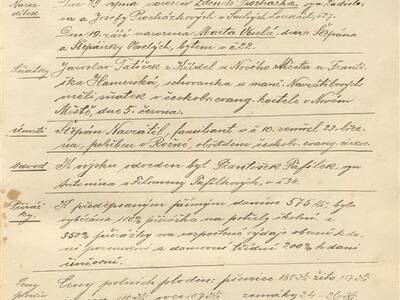 Naro-
zeni
Dne 29 srpna narozen Zdeněk Procházka, syn Ladisla-
va a Josefy Procházkových v Suchých Loukách, č. 27.
Dne 19. září narozena Marta Veselá, dcera Štěpána
a Štěpánky Veselých, bytem v č. 22.
Sňatky
Jaroslav Palíček z Křídel u Nového Města a Franti-
ška Humerská, schovanka u manž. Navrátilových
měli sňatek v českobr. evang. kostele v Novém
Městě, dne 5. června.
Úmrtí
Štěpán Navrátil, familiant v č. 10. zemřel 23. břez-
na, pohřben v Rožné, obřadem českobr. evang. církve.
Odvod
K vojsku odveden byl František Pařílek, syn
Antonína a Filomeny Pařílkových, v č. 34.
Přiráž-
ky.
K předepsaným přímým daním 575 Kč, byla
vybírána 110% přirážka na potřeby školní, a
350% přirážky na rozpočtové výdaje obecní k da-
ni pozemkové a domovní třídní 200% k dani
činžovní.
Ceny
plodin
Ceny polních plodin: pšenice 150 Kč žito 117 Kč
zemáky 24 - 26 Kč